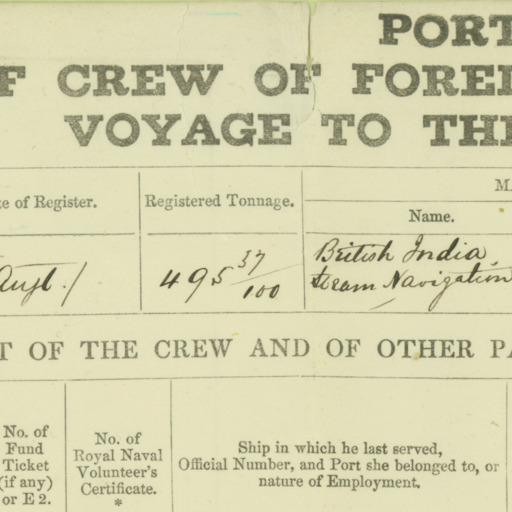 PORT
F CREW OF FOREI
VOYAGE TO THE
te of Register.
Registered Tonnage.
M
Name.
495 37/100
British India
Steam Navigation
T OF THE CREW AND OF OTHER PA
No. of
Fund
Ticket
(if any)
or E 2.
No. of
Royal Naval
Volunteer's
Certificate.
*
Ship in which he last served,
Official Number, and Port she belonged to, or
nature of Employment.